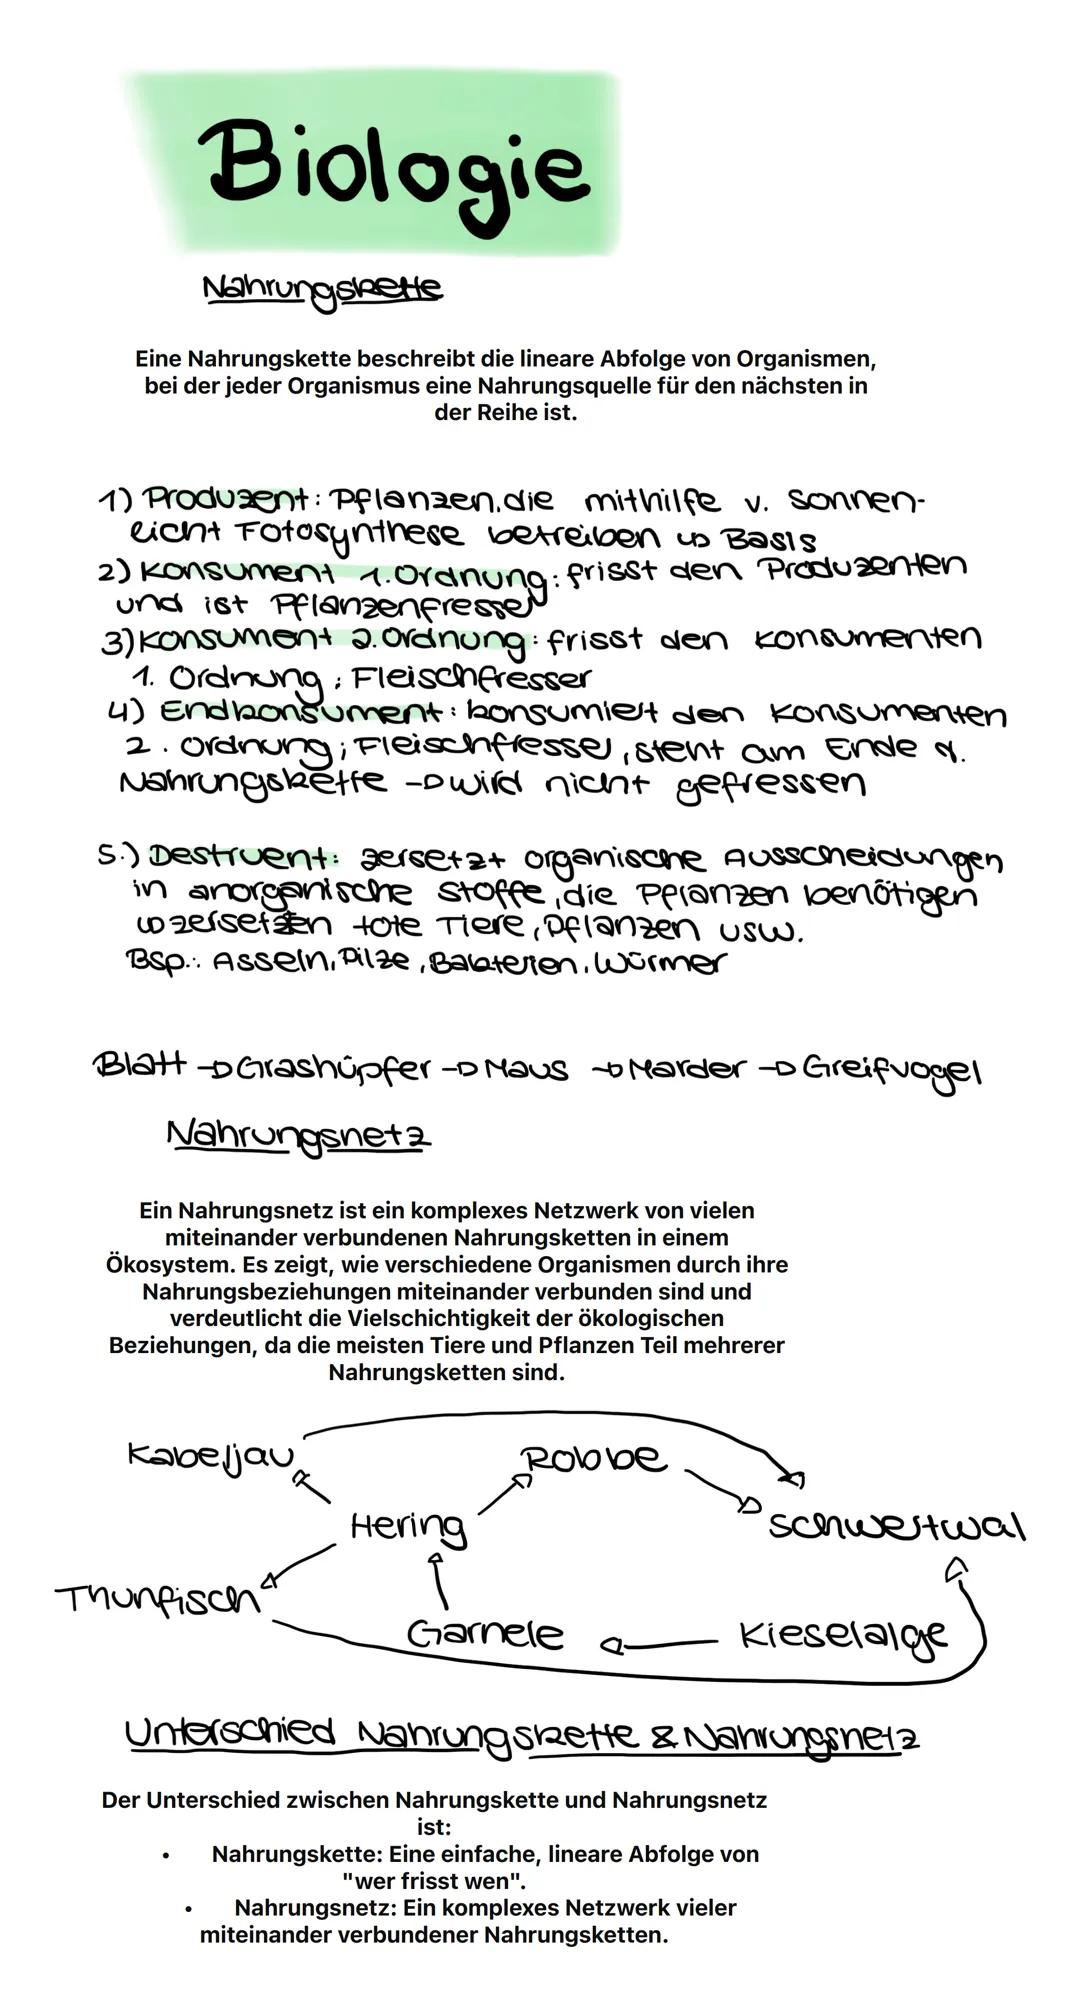 Biologie
Nahrungskette
Eine Nahrungskette beschreibt die lineare Abfolge von Organismen,
bei der jeder Organismus eine Nahrungsquelle für den nächsten in
der Reihe ist.
1) Produzent: Pflanzen, die mithilfe v. Sonnen-
licht Fotosynthese betreiben ↳ Basis
2) Konsument 1. Ordnung: frisst den Produzenten
und ist Pflanzenfresser
3) Konsument 2. Ordnung: frisst den Konsumenten
1. Ordnung ; Fleischfresser
4) Endkonsument: konsumiert den Konsumenten
2. Ordnung; Fleischfresser, steht am Ende d.
Nahrungskette → wird nicht gefressen
5.) Destruent: zersetzt organische Ausscheidungen
in anorganische Stoffe, die Pflanzen benötigen
↳ zersetzen tote Tiere, Pflanzen usw.
Bsp.: Asseln, Pilze, Bakterien, Würmer
Blatt → Grashüpfer → Maus → Marder → Greifvogel
Nahrungsnetz
Ein Nahrungsnetz ist ein komplexes Netzwerk von vielen
miteinander verbundenen Nahrungsketten in einem
Ökosystem. Es zeigt, wie verschiedene Organismen durch ihre
Nahrungsbeziehungen miteinander verbunden sind und
verdeutlicht die Vielschichtigkeit der ökologischen
Beziehungen, da die meisten Tiere und Pflanzen Teil mehrerer
Nahrungsketten sind.
Kabeljau Robbe
Hering Schwertwal
Thunfisch
Garnele Kieselalge
Unterschied Nahrungskette & Nahrungsnetz
Der Unterschied zwischen Nahrungskette und Nahrungsnetz
ist:
• Nahrungskette: Eine einfache, lineare Abfolge von
"wer frisst wen".
• Nahrungsnetz: Ein komplexes Netzwerk vieler
miteinander verbundener Nahrungsketten.